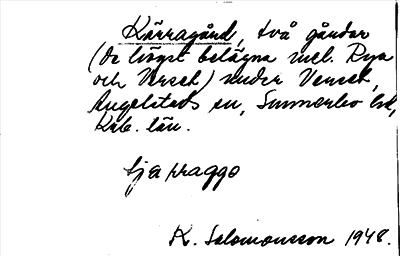 Kärragård, två gårdar
(de högst belägna mel. Rya
och Verset) under Verset,
Angelstads sn, Sunnerbo hd,
Krb. län.
K. Salomonsson 1948.